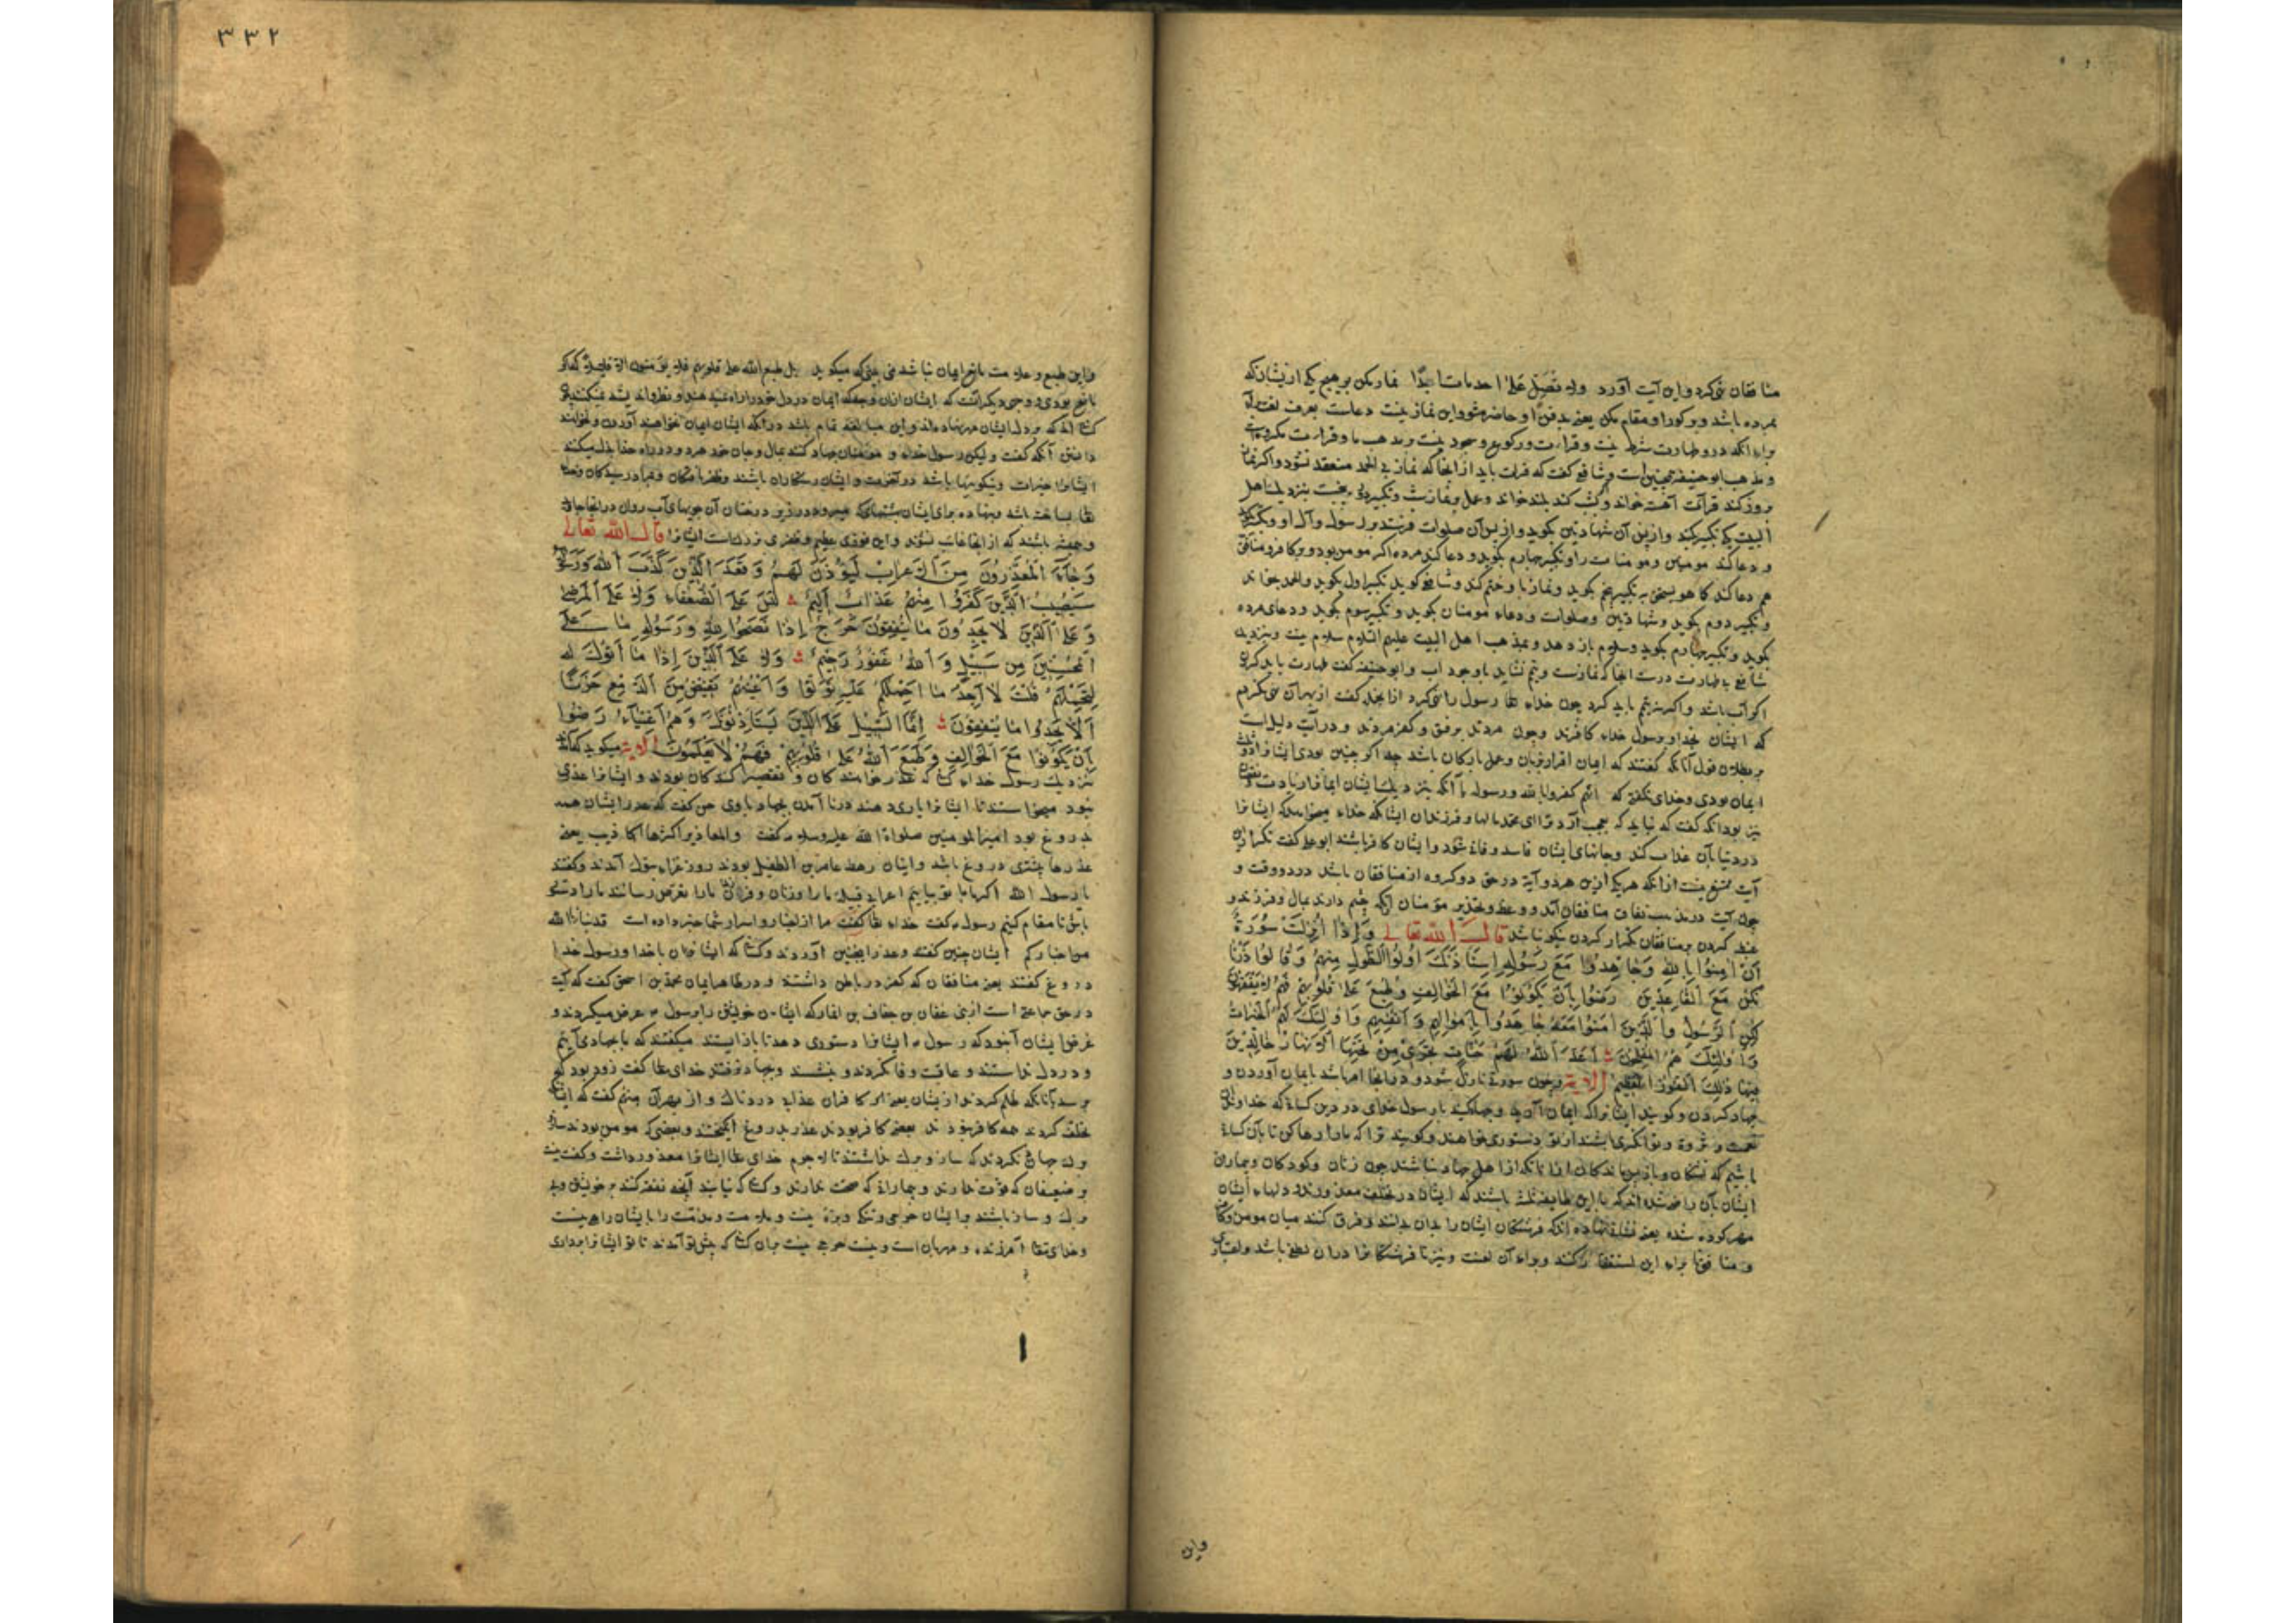 منافقان نهی کرد و این آیت آورد ولا تصل علی احد مات ابدا نماز مکن بر هیچ یکی از ایشان که
بمرده باشد و بر کور او مقام مکن یعنی بدفن او حاضر مشو و این نماز نیست دعاست بعرف لغت
برای آنکه درو طهارت شرط نیست و قراءت و رکوع و سجود نیست و مذهب ما و قراءت مکروهست
و مذهب ابو حنیفه همچنین است و شافعی گفت که قراءت باید از آنجا که نماز بی الحمد منعقد نشود و اگر نماز
بروز کند قرائت آهسته خواند و بشب کند بلند خواند و عمل و نماز شب و تکبیر بنزدیک اهل
البیت یکی تکبیر بکند و از پس آن شهادتین بگوید و از پس آن صلوات فرستد بر رسول و آل او و تکبیر
و دعا کند مومنین و مومنات را و تکبیر چهارم بگوید و دعا کند مرده اگر مومن بود و بر کافر و منافق
هم دعا کند کما هو یستحق به تکبیر پنجم بگوید و نماز با و ختم کند و شافعی گوید تکبیر اول بگوید و الحمد بخواند
و تکبیر دوم بگوید و شهادتین و صلوات و دعاء مومنان بگوید و تکبیر سوم بگوید و دعای مرده
بگوید و تکبیر چهارم بگوید و سلام باز دهد و بمذهب اهل البیت علیهم السلام سلام نیست و بنزدیک
شافعی بی طهارت درست آنجا که نمازست و تیمم نشاید با وجود آب و ابو حنیفه گفت طهارت باید کردن
اگر آب باشد و اگر نه تیمم باید کرد چون خدای تعالی رسول را نهی کرد از آنجمله گفت از بهر آن نهی میکردم
که ایشان بخدا و رسول خدا کافرند و چون مردند بر فسق و کفر مردند و در آیت دلیل است
بر بطلان قول آنانکه گفتند که ایمان اقرار بزبان و عمل بارکان باشد چه اگر چنین بودی ایشان را
ایمان بودی و خدای نگفتی که انهم کفروا بالله و رسوله با آنکه بنزدیک ایشان ایمان زیادت و نقصان
پذیر بود آنکه گفت که نباید که عجب آرد ترا ای محمد مالها و فرزندان ایشان که خدای میخواهد که ایشان را
در دنیا بآن عذاب کند و جانهای ایشان فاسد و فانی شود و ایشان کافر باشند ابو علی گفت تکرار این
آیت ممتنع نیست از آنکه هر یک ازین هر دو آیة در حق دو گروه از منافقان باشد در دو وقت و
چون آیت در مذمت نفاق منافقان آمد و وعظ و تحذیر مومنان آنکه چشم دارند بمال و فرزند و
عبد کردن بر منافقان تکرار کردن نیکو باشد قال الله تعالی وَإِذَا أُنْزِلَتْ سُورَةٌ
أَنْ آمِنُوا بِاللهِ وَجَاهِدُوا مَعَ رَسُولِهِ اسْتَأْذَنَكَ أُولُوا الطَّوْلِ مِنْهُمْ وَقَالُوا ذَرْنَا
نَكُنْ مَعَ الْقَاعِدِينَ رَضُوا بِأَنْ يَكُونُوا مَعَ الْخَوَالِفِ وَطُبِعَ عَلَى قُلُوبِهِمْ فَهُمْ لَا يَفْقَهُونَ
لَكِنِ الرَّسُولُ وَالَّذِينَ آمَنُوا مَعَهُ جَاهَدُوا بِأَمْوَالِهِمْ وَأَنْفُسِهِمْ وَأُولَئِكَ لَهُمُ الْخَيْرَاتُ
وَأُولَئِكَ هُمُ الْمُفْلِحُونَ أَعَدَّ اللهُ لَهُمْ جَنَّاتٍ تَجْرِي مِنْ تَحْتِهَا الْأَنْهَارُ خَالِدِينَ
فِيهَا ذَلِكَ الْفَوْزُ الْعَظِيمُ الآیة و چون سورة نازل شود و در آنجا امر باشد بایمان آوردن و
جهاد کردن و گویند ایشان را که ایمان آرید و جهاد کنید با رسول خدای در دین کسانی که خداوندان
نعمت و ثروة و توانگری باشند از تو دستوری خواهند و گویند ترا که ما را رها کن تا با آن کسان
باشیم که نشستگان و باز پس ماندگان اند از آنکه از اهل جهاد نباشند چون زنان و کودکان و بیماران
ایشان بآن راضی شده اند که با این طایفه نشسته باشند که ایشان در تخلف معذورند و دلهای ایشان
مهر کرده شده یعنی نشانه نهاده اند که فرشتگان ایشان را بدان بدانند و فرق کنند میان مومن و کافر
و منافق برای این استخفاف کنند و برای آن لعنت و نیز تا فرشتگان را در آن لطفی باشد و اعتبار
واین
٣٣٢
و این طبع و علامت مانع ایمان نباشد نمی بینی که میگوید بل طبع الله علی قلوبهم فلا یؤمنون الا قلیلا که اگر
مانع بودی و وجهی دیگر آنست که ایشان از آن وجه که ایمان در دل خود را راه نمیدهند و نظر و اندیشه نمیکنند
کسانی اند که بر دل ایشان مهر نهاده اند و این مبالغه تمام باشد در آنکه ایشان ایمان نخواهند آوردن و نخواهند
دانستن آنکه گفت ولیکن رسول خدا و مومنان جهاد کنند بمال و جان خود هر دو در راه خدا بذل میکنند
ایشان را خیرات و نیکوییها باشد در آخرت و ایشان رستگاران باشند و ظفر یافتگان و بمراد رسیدگان و خدای
تعالی ساخته باشد و نهاده برای ایشان بهشتهایی که میرود در زیر درختان آن جویهای آب روان در آنجا جاوید
و همیشه باشند که از آنجا غایب نشوند و این فوزی عظیم و ظفری بزرگ است ایشان را قال الله تعالی
وَجَاءَ الْمُعَذِّرُونَ مِنَ الْأَعْرَابِ لِيُؤْذَنَ لَهُمْ وَقَعَدَ الَّذِينَ كَذَبُوا اللهَ وَرَسُولَهُ
سَيُصِيبُ الَّذِينَ كَفَرُوا مِنْهُمْ عَذَابٌ أَلِيمٌ لَيْسَ عَلَى الضُّعَفَاءِ وَلَا عَلَى الْمَرْضَى
وَعَلَى الَّذِينَ لَا يَجِدُونَ مَا يُنْفِقُونَ حَرَجٌ إِذَا نَصَحُوا لِلَّهِ وَرَسُولِهِ مَا عَلَى
الْمُحْسِنِينَ مِنْ سَبِيلٍ وَاللهُ غَفُورٌ رَحِيمٌ وَلَا عَلَى الَّذِينَ إِذَا مَا أَتَوْكَ
لِتَحْمِلَهُمْ قُلْتَ لَا أَجِدُ مَا أَحْمِلُكُمْ عَلَيْهِ تَوَلَّوْا وَأَعْيُنُهُمْ تَفِيضُ مِنَ الدَّمْعِ حَزَنًا
أَلَّا يَجِدُوا مَا يُنْفِقُونَ إِنَّمَا السَّبِيلُ عَلَى الَّذِينَ يَسْتَأْذِنُونَكَ وَهُمْ أَغْنِيَاءُ رَضُوا
بِأَنْ يَكُونُوا مَعَ الْخَوَالِفِ وَطَبَعَ اللهُ عَلَى قُلُوبِهِمْ فَهُمْ لَا يَعْلَمُونَ الآیة میگوید که آمدند
بنزدیک رسول خدای کسانی که عذر خواهندگان و تقصیر کنندگان بودند و ایشان را عذری
نبود میخواستند تا ایشان را یاری دهند درنا آمدن بجهاد باوی حق گفت که عذر ایشان همه
بدروغ بود امیرالمومنین صلواة الله علیه وسلم گفت والمعاذیر اکثرها اکاذیب یعنی
عذرها بیشتری دروغ باشد و ایشان رهط عامر بن الطفیل بودند روز غزاء تبوک آمدند و گفتند
یا رسول الله اگر ما با تو بیاییم اعراب قبیله ما را و زنان و فرزندان ما را تعرض رسانند ما را دستوری
باش تا مقام کنیم رسول گفت خدای تعالی گفت مرا از اخبار و اسرار شما خبر داده است قد نبانا الله
من اخبارکم ایشان چنین گفتند و عذر اینچنین آوردند و کسانی که ایشان با خدا و رسول خدا
دروغ گفتند یعنی منافقان که کفر در باطن داشتند و در ظاهر ایمان محمد بن اسحق گفت که آیة
در حق جماعتی است از بنی غفان بن خفاف بن که ایشان خویشتن را بر رسول عرض میکردند و
غرض ایشان آن بود که رسول ایشان را دستوری دهد تا باز ایستند میگفتند که ما بجهاد می آییم
و در دل نداشتند و عاقبت وفا نکردند و بنشستند و بجهاد نرفتند خدای تعالی گفت زود بود که
برسد آنانکه ظلم کردند از ایشان یعنی کافران عذاب دردناک و از بهر آن منهم گفت که
تخلف کردند همه کافر نبودند بعضی کافر بودند عذر بدروغ انگیختند و بعضی که مومن بودند ساز
و برگ جهاد نکردند که ساز و برگ نداشتند لاجرم خدای تعالی ایشان را معذور داشت و گفت نیست
بر ضعیفان که قوت ندارند و بیمارانی که صحت ندارند و کسانی که نیابند آنچه نفقه کنند بر خویشتن و بی
برگ و ساز باشند و ایشان حرجی و تنگی و بزه نیست و ملامت و مذمت را با ایشان راهی نیست
و خدای تعالی آمرزنده و مهربان است و نیست حرجی نیست بر آن کسانی که پیش تو آمدند تا تو ایشان را برداری